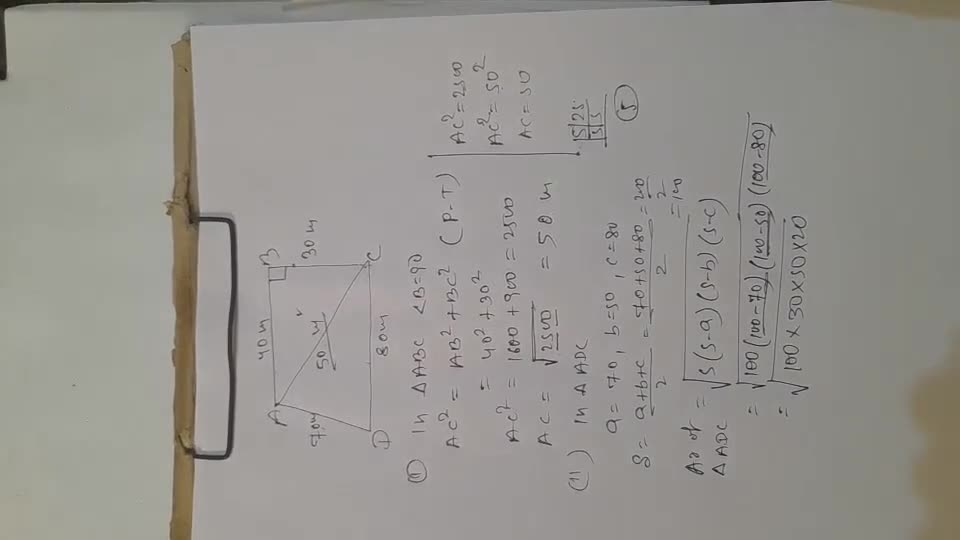 A 40 m B
70m 50 m 30 m
D 80m C
(I) In △ABC ∠B=90
AC² = AB² + BC² (P-T)
= 40² + 30²
AC² = 1600 + 900 = 2500
AC = √2500 = 50 m
AC² = 2500
AC² = 50²
AC = 50
(11) In △ ADC
5|25
5|5
(5)
a = 70, b = 50, c = 80
S = a+b+c/2 = 70+50+80/2 = 200/2
= 100
Ar of = √S(S-a)(S-b)(S-c)
△ADC
= √100(100-70)(100-50)(100-80)
= √100 × 30 × 50 × 20